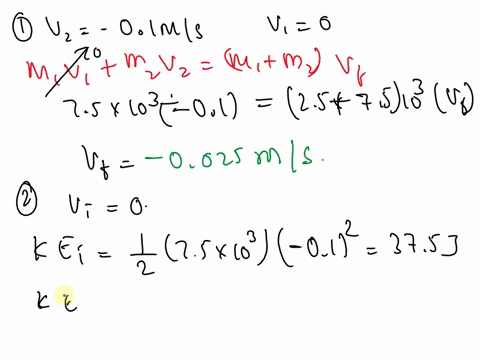 ① V₂ = - 0.1 m/s V₁ = 0
m₁V₁ + m₂V₂ = (m₁ + m₂) Vf
7.5 × 10³ (-0.1) = (2.5 + 7.5) 10³ (Vf)
Vf = -0.025 m/s.
② Vi = 0.
KEi = 1/2 (7.5 × 10³) (-0.1)² = 37.5 J
KE